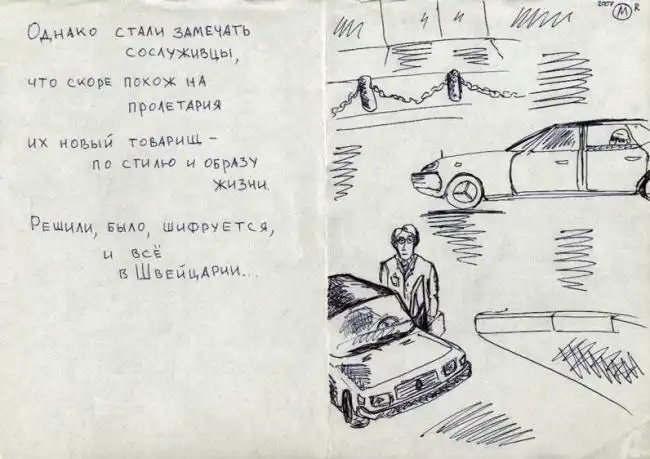 Однако стали замечать
сослуживцы,
что скоре похож на
пролетария
их новый товарищ –
по стилю и образу
жизни.
Решили, было, шифруется,
и всё
в Швейцарии...
2007 М R